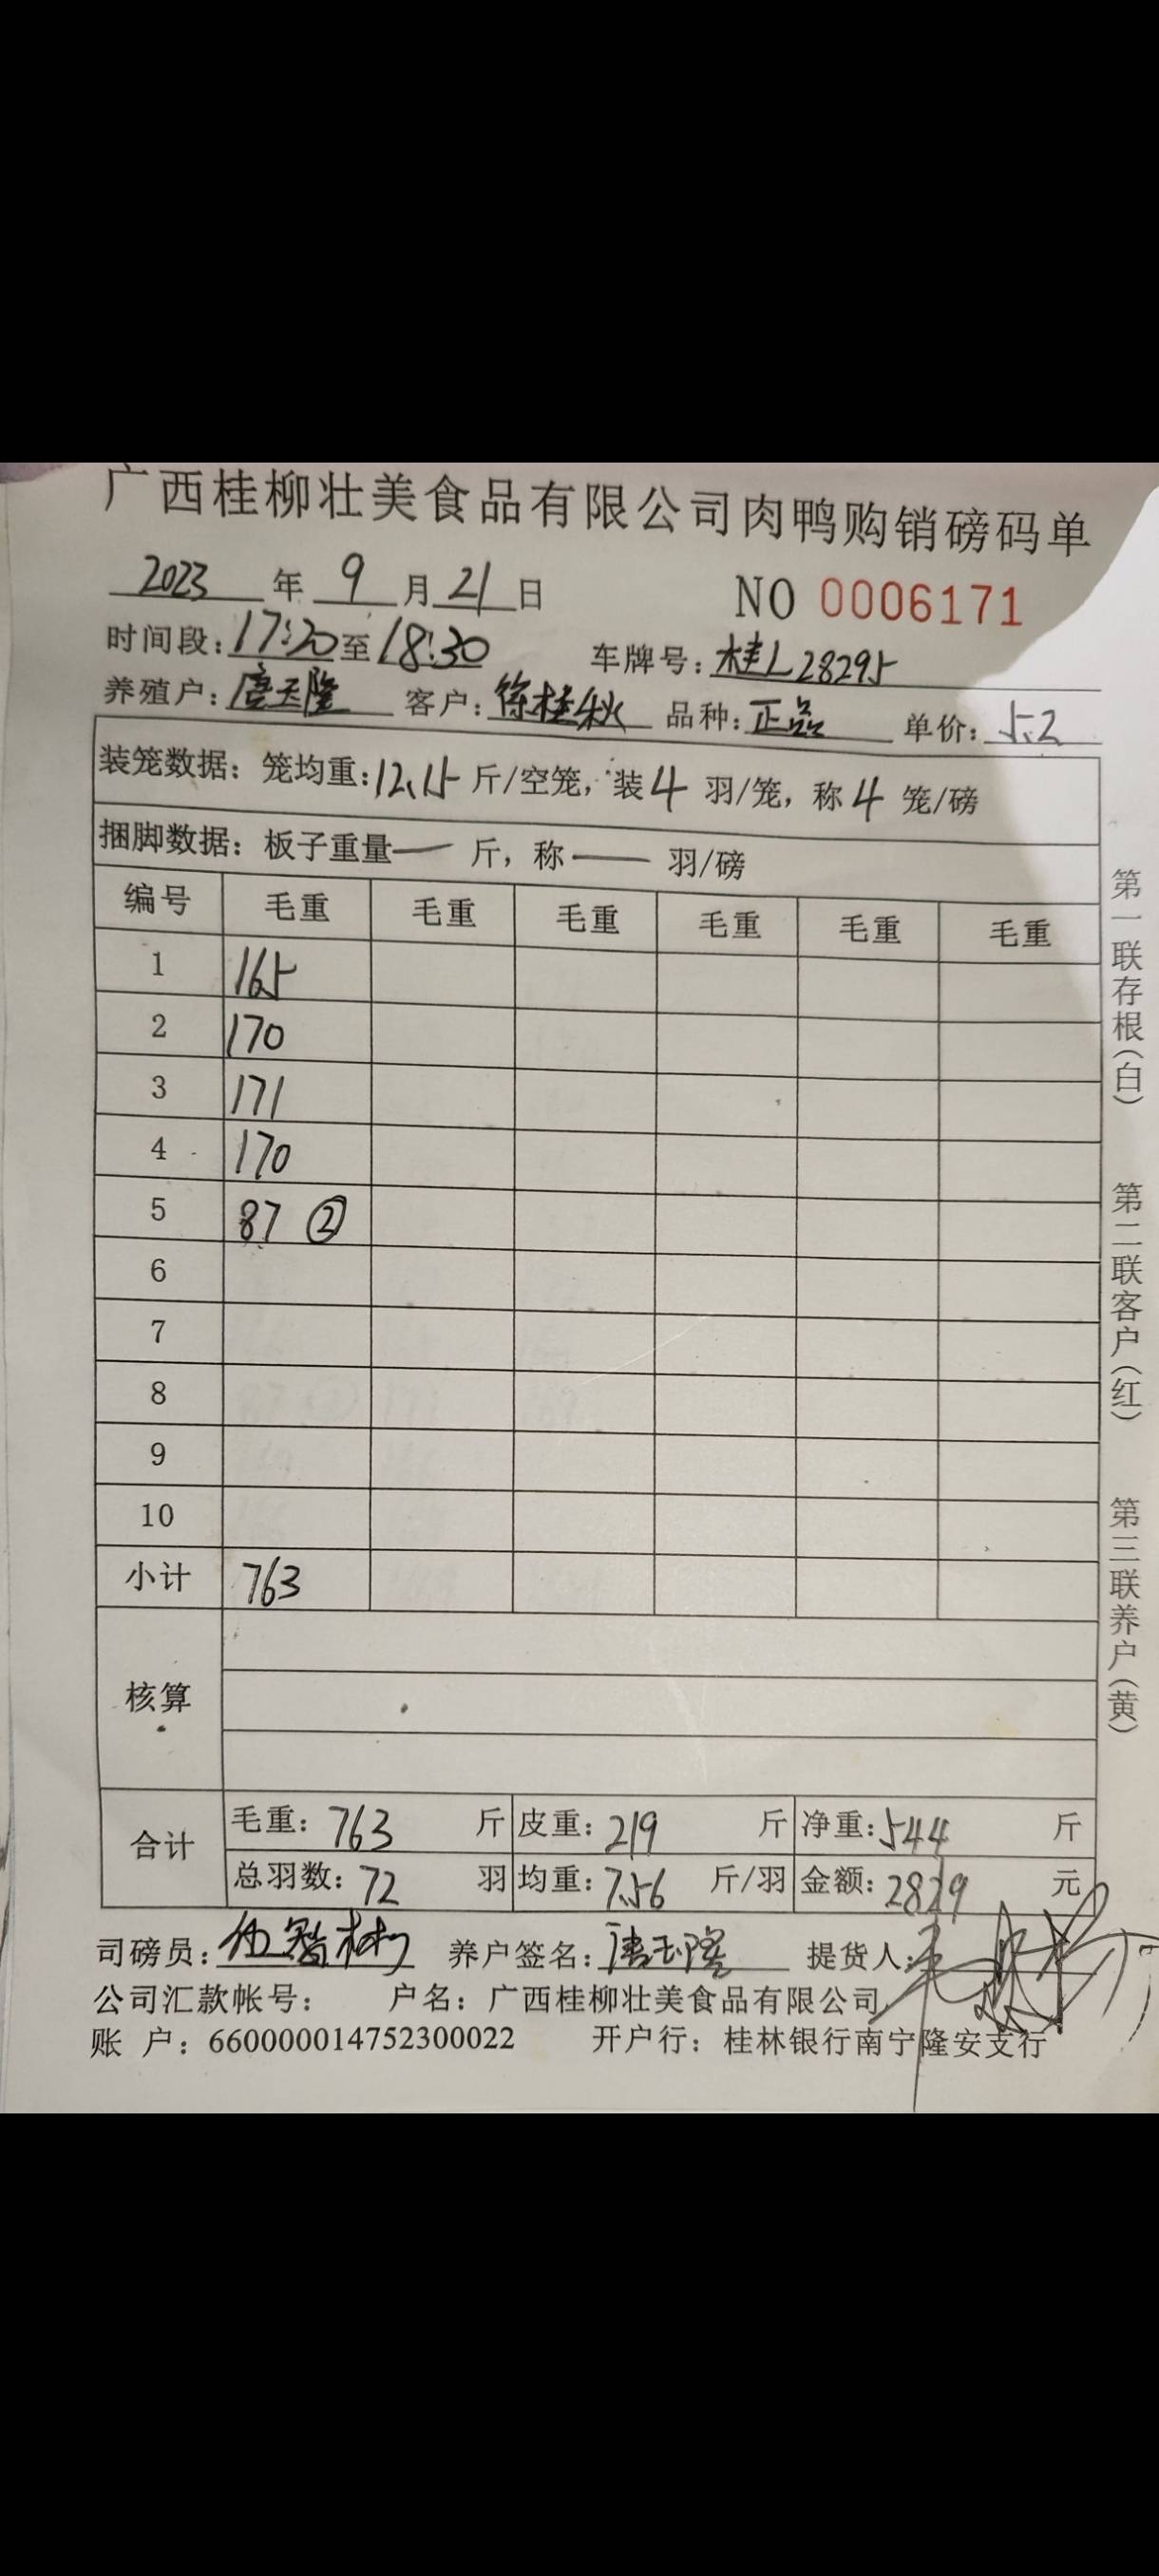 广西桂柳壮美食品有限公司肉鸭购销磅码单
2023 年 9 月 21 日 NO 0006171
时间段：17:20 至 18:30 车牌号：桂L28295
养殖户：唐玉隆 客户：徐桂秋 品种：正品 单价：5.2
装笼数据：笼均重：12.15 斤/空笼，装 4 羽/笼，称 4 笼/磅
捆脚数据：板子重量 — 斤，称 — 羽/磅
编号 毛重 毛重 毛重 毛重 毛重 毛重
1 165
2 170
3 171
4 170
5 87 ②
6
7
8
9
10
小计 763
核算
合计 毛重：763 斤 皮重：219 斤 净重：544 斤
总羽数：72 羽 均重：7.56 斤/羽 金额：2829 元
司磅员： 养户签名：唐玉隆 提货人：
公司汇款帐号： 户名：广西桂柳壮美食品有限公司
账 户：660000014752300022 开户行：桂林银行南宁隆安支行
第一联存根（白）
第二联客户（红）
第三联养户（黄）